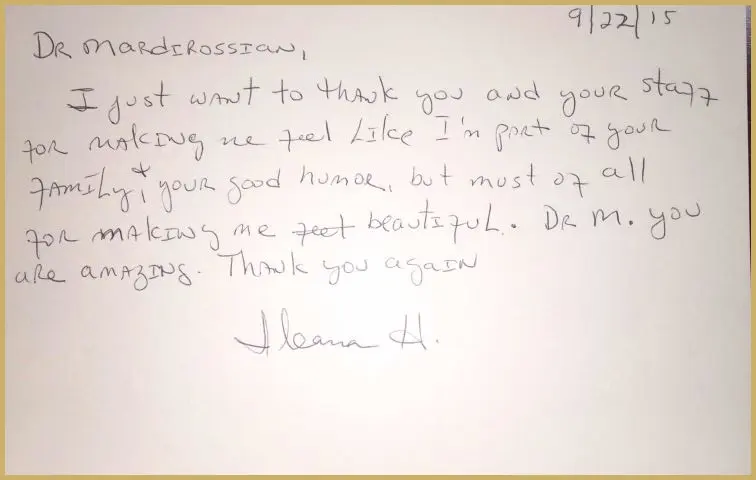 9/22/15
Dr Mardirossian,
I just want to thank you and your staff
for making me feel like I'm part of your
family, + your good humor, but most of all
for making me feel beautiful. Dr M. you
are amazing. Thank you again
Ileana H.